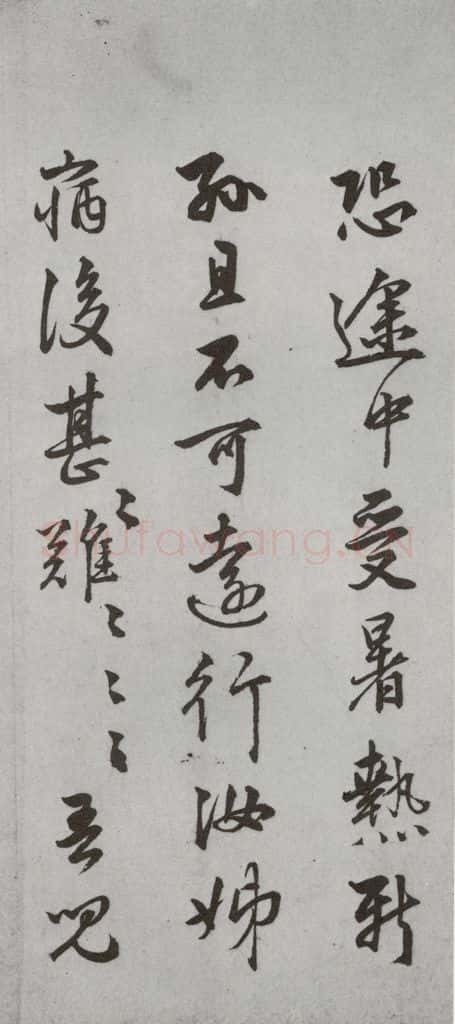 恐途中受暑熱新
孫且不可遠行汝姊
病後甚〻難〻〻〻吾兒
shufawang.CN